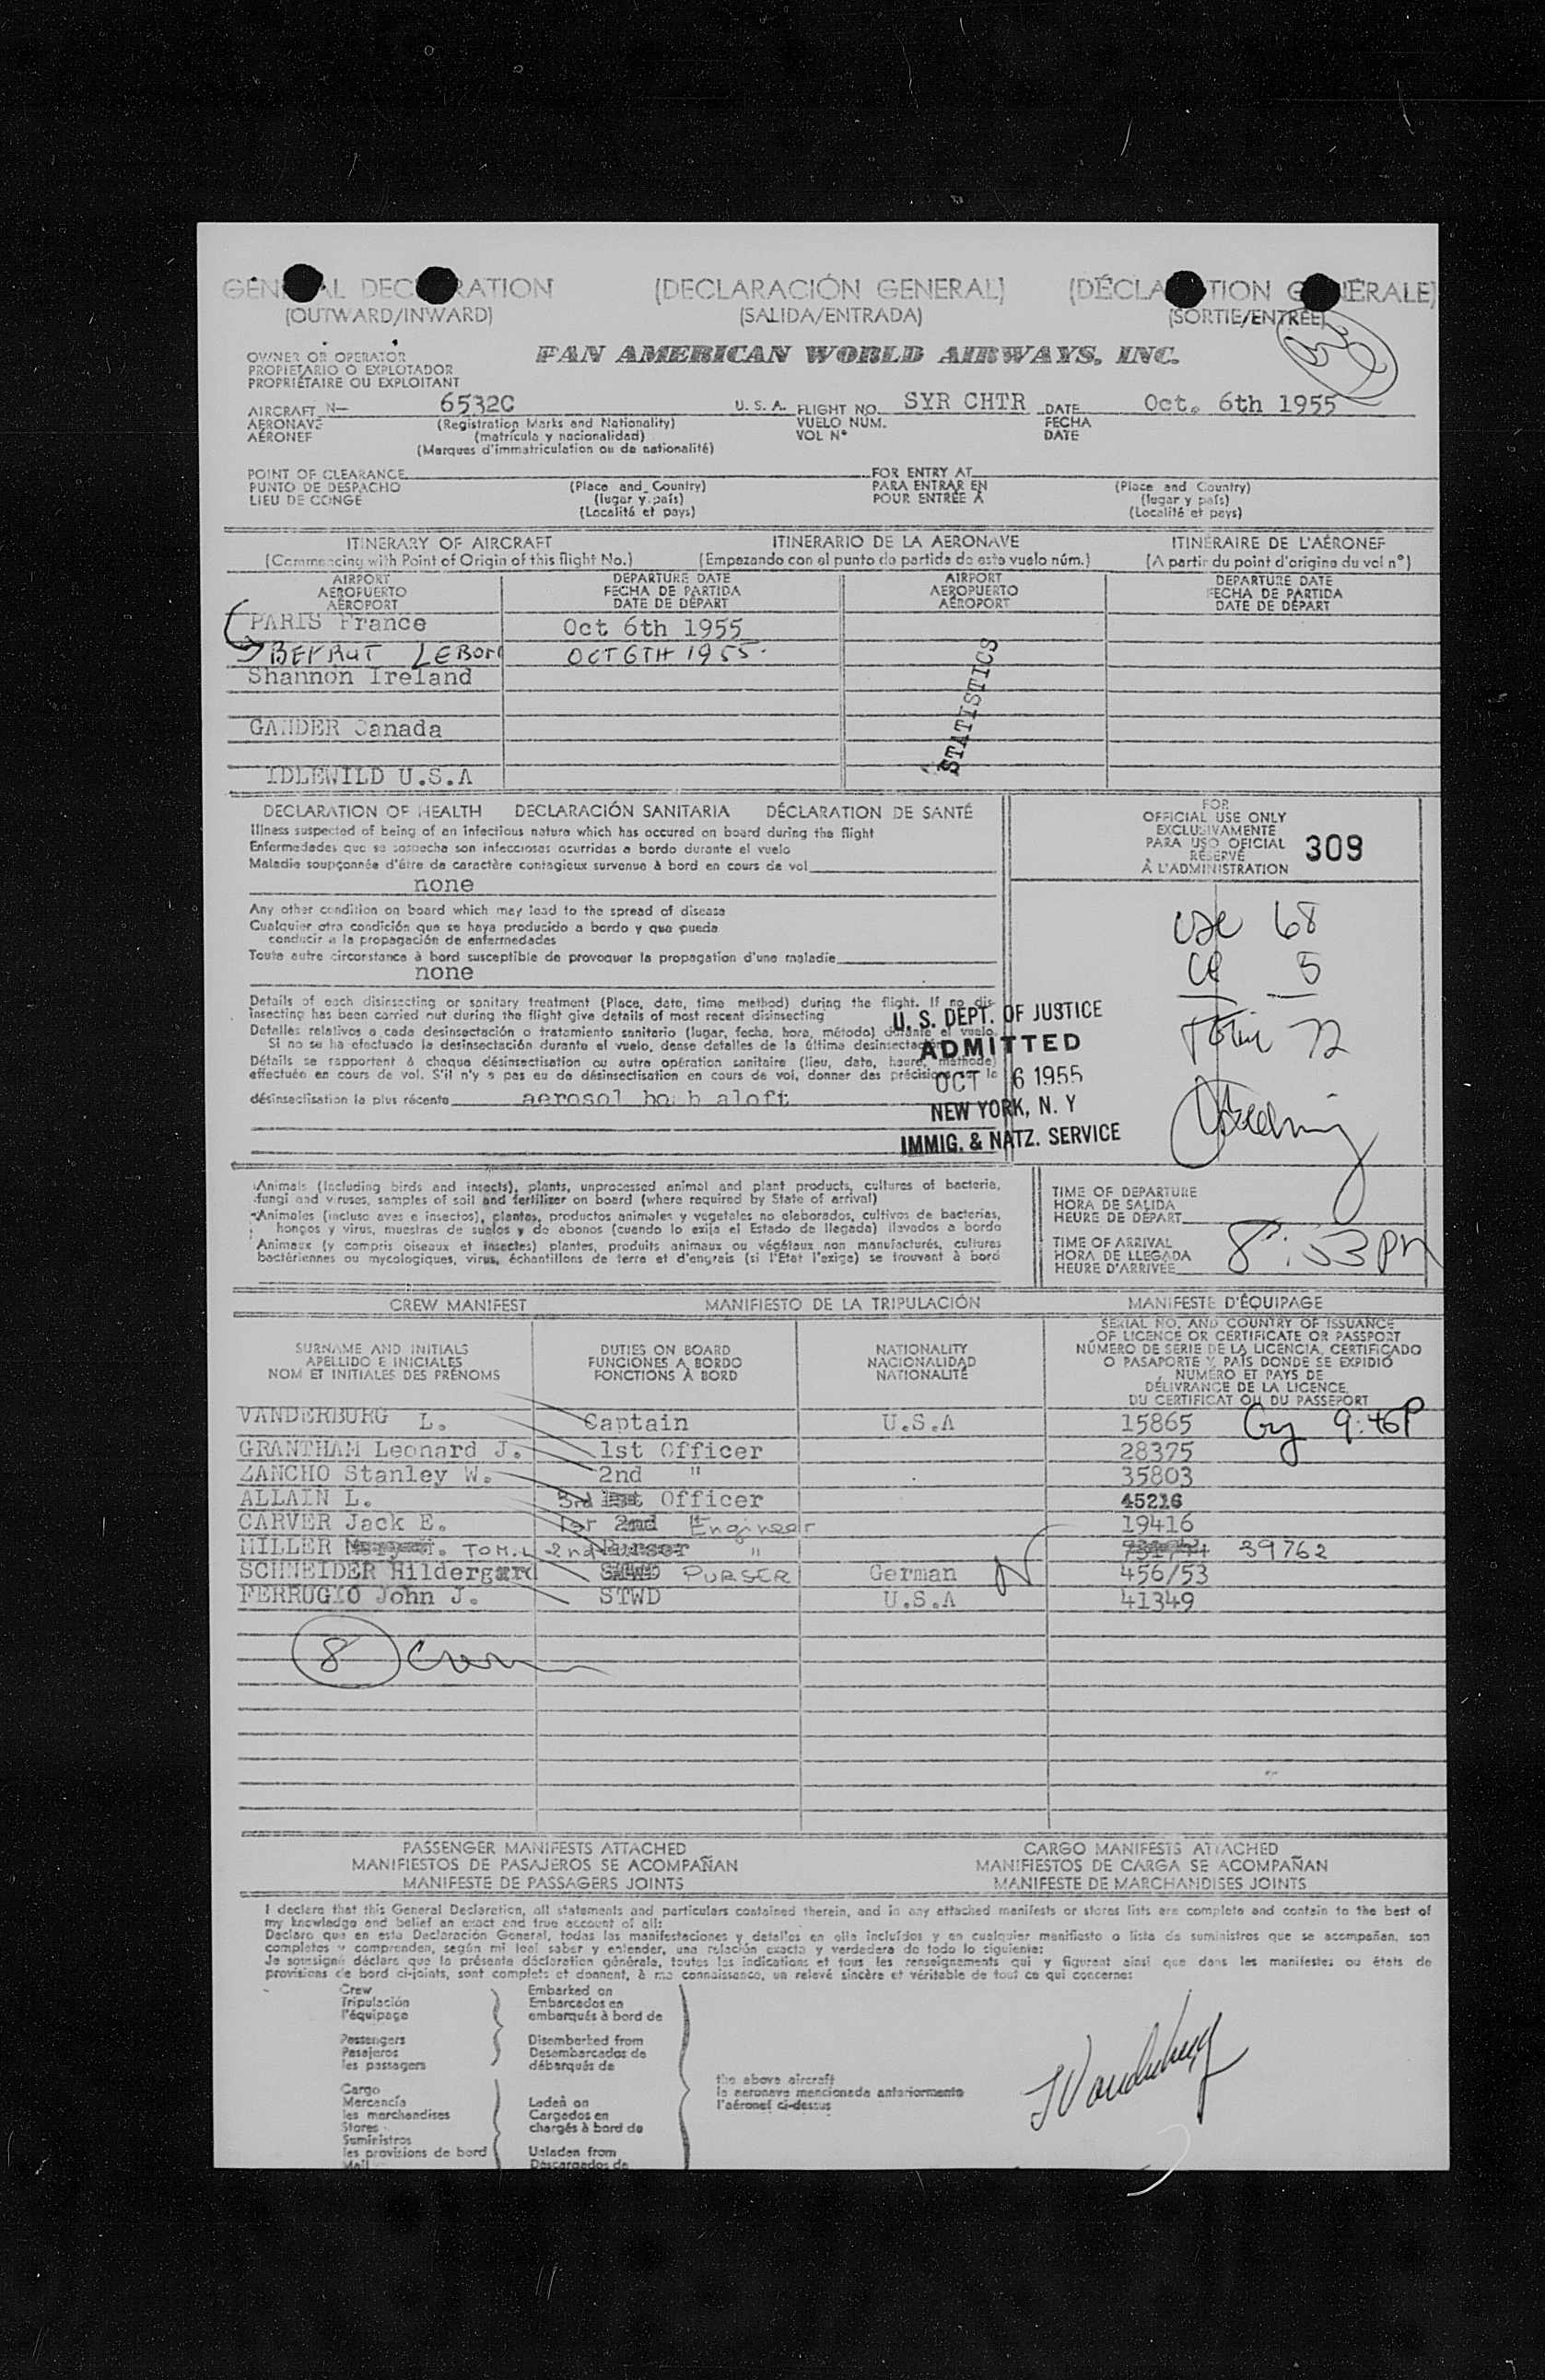 GENERAL DECLARATION (DECLARACIÓN GENERAL) (DÉCLARATION GÉNÉRALE)
(OUTWARD/INWARD) (SALIDA/ENTRADA) (SORTIE/ENTRÉE)
OWNER OR OPERATOR
PROPIETARIO O EXPLOTADOR
PROPRIÉTAIRE OU EXPLOITANT
PAN AMERICAN WORLD AIRWAYS, INC.
AIRCRAFT N— 6532C U. S. A. FLIGHT NO. SYR CHTR DATE Oct. 6th 1955
AERONAVE (Registration Marks and Nationality) VUELO NÚM. FECHA
AÉRONEF (matrícula y nacionalidad) VOL Nº DATE
(Marques d'immatriculation ou de nationalité)
POINT OF CLEARANCE FOR ENTRY AT
PUNTO DE DESPACHO (Place and Country) PARA ENTRAR EN (Place and Country)
LIEU DE CONGÉ (lugar y país) POUR ENTRÉE À (lugar y país)
(Localité et pays) (Localité et pays)
ITINERARY OF AIRCRAFT ITINERARIO DE LA AERONAVE ITINÉRAIRE DE L'AÉRONEF
(Commencing with Point of Origin of this flight No.) (Empezando con el punto de partida de este vuelo núm.) (A partir du point d'origine du vol nº)
AIRPORT DEPARTURE DATE AIRPORT DEPARTURE DATE
AEROPUERTO FECHA DE PARTIDA AEROPUERTO FECHA DE PARTIDA
AÉROPORT DATE DE DÉPART AÉROPORT DATE DE DÉPART
PARIS France Oct 6th 1955
BEYRUT LEBON OCT 6TH 1955.
Shannon Ireland
GANDER Canada
IDLEWILD U.S.A
STATISTICS
DECLARATION OF HEALTH DECLARACIÓN SANITARIA DÉCLARATION DE SANTÉ
Illness suspected of being of an infectious nature which has occured on board during the flight
Enfermedades que se sospecha son infecciosas ocurridas a bordo durante el vuelo
Maladie soupçonnée d'être de caractère contagieux survenue à bord en cours de vol
none
Any other condition on board which may lead to the spread of disease
Cualquier otra condición que se haya producido a bordo y que pueda
conducir a la propagación de enfermedades
Toute autre circonstance à bord susceptible de provoquer la propagation d'une maladie
none
Details of each disinsecting or sanitary treatment (Place, date, time method) during the flight. If no dis-
insecting has been carried out during the flight give details of most recent disinsecting
Detalles relativos a cada desinsectación o tratamiento sanitario (lugar, fecha, hora, método) durante el vuelo.
Si no se ha efectuado la desinsectación durante el vuelo, dense detalles de la última desinsectación
Détails se rapportent à chaque désinsectisation ou autre opération sanitaire (lieu, date, heure, méthode)
effectuée en cours de vol. S'il n'y a pas eu de désinsectisation en cours de vol, donner des précisions la
désinsectisation la plus récente aerosol bomb aloft
FOR
OFFICIAL USE ONLY
EXCLUSIVAMENTE
PARA USO OFICIAL
RÉSERVÉ
À L'ADMINISTRATION
309
USC 68
5
Total 72
U. S. DEPT. OF JUSTICE
ADMITTED
OCT 6 1955
NEW YORK, N. Y
IMMIG. & NATZ. SERVICE
Animals (Including birds and insects), plants, unprocessed animal and plant products, cultures of bacteria,
fungi and viruses, samples of soil and fertilizer on board (where required by State of arrival)
Animales (incluso aves e insectos), plantas, productos animales y vegetales no elaborados, cultivos de bacterias,
hongos y virus, muestras de suelos y de abonos (cuando lo exija el Estado de llegada) llevados a bordo
Animaux (y compris oiseaux et insectes) plantes, produits animaux ou végétaux non manufacturés, cultures
bactériennes ou mycologiques, virus, échantillons de terre et d'engrais (si l'Etat l'exige) se trouvant à bord
TIME OF DEPARTURE
HORA DE SALIDA
HEURE DE DÉPART
TIME OF ARRIVAL
HORA DE LLEGADA
HEURE D'ARRIVÉE
8:53 PM
CREW MANIFEST MANIFIESTO DE LA TRIPULACIÓN MANIFESTE D'ÉQUIPAGE
SURNAME AND INITIALS
APELLIDO E INICIALES
NOM ET INITIALES DES PRÉNOMS
DUTIES ON BOARD
FUNCIONES A BORDO
FONCTIONS À BORD
NATIONALITY
NACIONALIDAD
NATIONALITÉ
SERIAL NO. AND COUNTRY OF ISSUANCE
OF LICENCE OR CERTIFICATE OR PASSPORT
NÚMERO DE SERIE DE LA LICENCIA, CERTIFICADO
O PASAPORTE Y PAÍS DONDE SE EXPIDIÓ
NUMÉRO ET PAYS DE
DÉLIVRANCE DE LA LICENCE,
DU CERTIFICAT OU DU PASSEPORT
VANDERBURG L. Captain U.S.A 15865 9:40P
GRANTHAM Leonard J. 1st Officer 28375
ZANCHO Stanley W. 2nd " 35803
ALLAIN L. 3rd Officer 45216
CARVER Jack E. 1st 2nd Engineer 19416
MILLER TOM.L 2nd Purser " 39762
SCHNEIDER Hildergard STWD PURSER German 456/53
FERRUGIO John J. STWD U.S.A 41349
8 Crew
PASSENGER MANIFESTS ATTACHED CARGO MANIFESTS ATTACHED
MANIFIESTOS DE PASAJEROS SE ACOMPAÑAN MANIFIESTOS DE CARGA SE ACOMPAÑAN
MANIFESTE DE PASSAGERS JOINTS MANIFESTE DE MARCHANDISES JOINTS
I declare that this General Declaration, all statements and particulars contained therein, and in any attached manifests or stores lists are complete and contain to the best of
my knowledge and belief an exact and true account of all:
Declaro que en esta Declaración General, todas las manifestaciones y detalles en ella incluídos y en cualquier manifiesto o lista de suministros que se acompañan, son
completos y comprenden, según mi leal saber y entender, una relación exacta y verdadera de todo lo siguiente:
Je soussigné déclare que la présente déclaration générale, toutes les indications et tous les renseignements qui y figurent ainsi que dans les manifestes ou états de
provisions de bord ci-joints, sont complets et donnent, à ma connaissance, un relevé sincère et véritable de tout ce qui concerne:
Crew Embarked on
Tripulación Embarcados en
l'équipage embarqués à bord de
Passengers Disembarked from
Pasajeros Desembarcados de
les passagers débarqués de
the above aircraft
la aeronave mencionada anteriormente
l'aéronef ci-dessus
Cargo
Mercancía Laden on
les marchandises Cargados en
Stores chargés à bord de
Suministros
les provisions de bord Unladen from
Mail Descargados de
LVanderburg